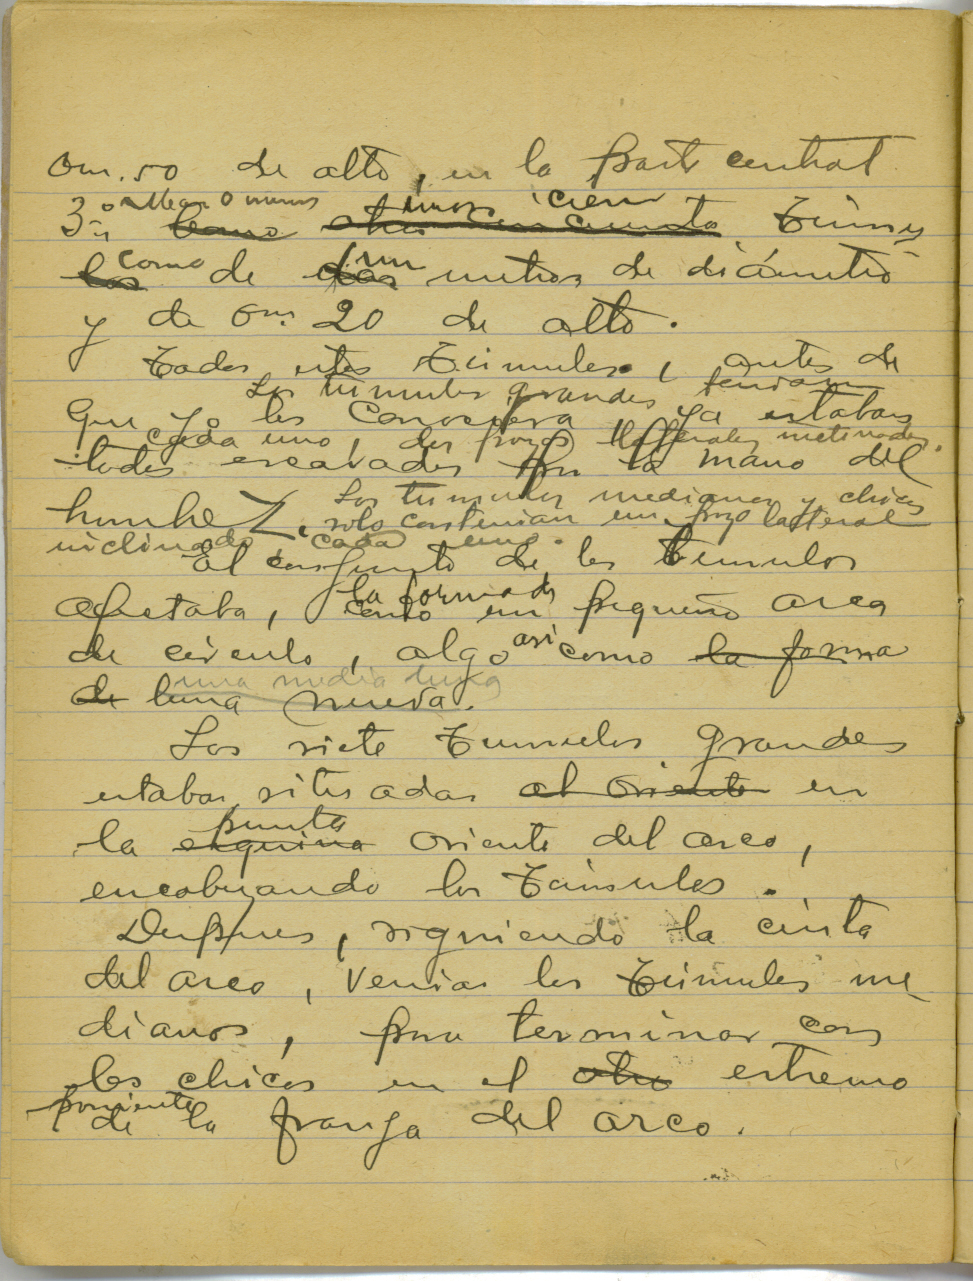 0m.50 de alto, en la parte central
Mas o menos unos cien
3º.- Como otros cincuenta Túmu-
como un
los de dos metros de diámetro
y de 0m. 20 de alto.
Todos estos Túmulos, antes de
Los túmulos grandes tenían
que yo los conociera ya estaban
cada uno, dos pozos latterales inclinados.
todos escavados por la mano del
hombre. Los túmulos medianos y chicos
solo contenían un pozo latteral
inclinado, cada uno.
El conjunto de los túmulos
la forma de
afectaba, como un pequeño arco
de círculo, algo así como la forma
una media luna
de luna nueva.
Los siete Túmulos grandes
estaban situados al oriente en
punta
la esquina oriente del arco,
encabezando los Túmulos.
Despues, siguiendo la cinta
del arco, venían los Túmulos me-
dianos, para terminar con
los chicos en el otro estremo
poniente
de la franja del arco.